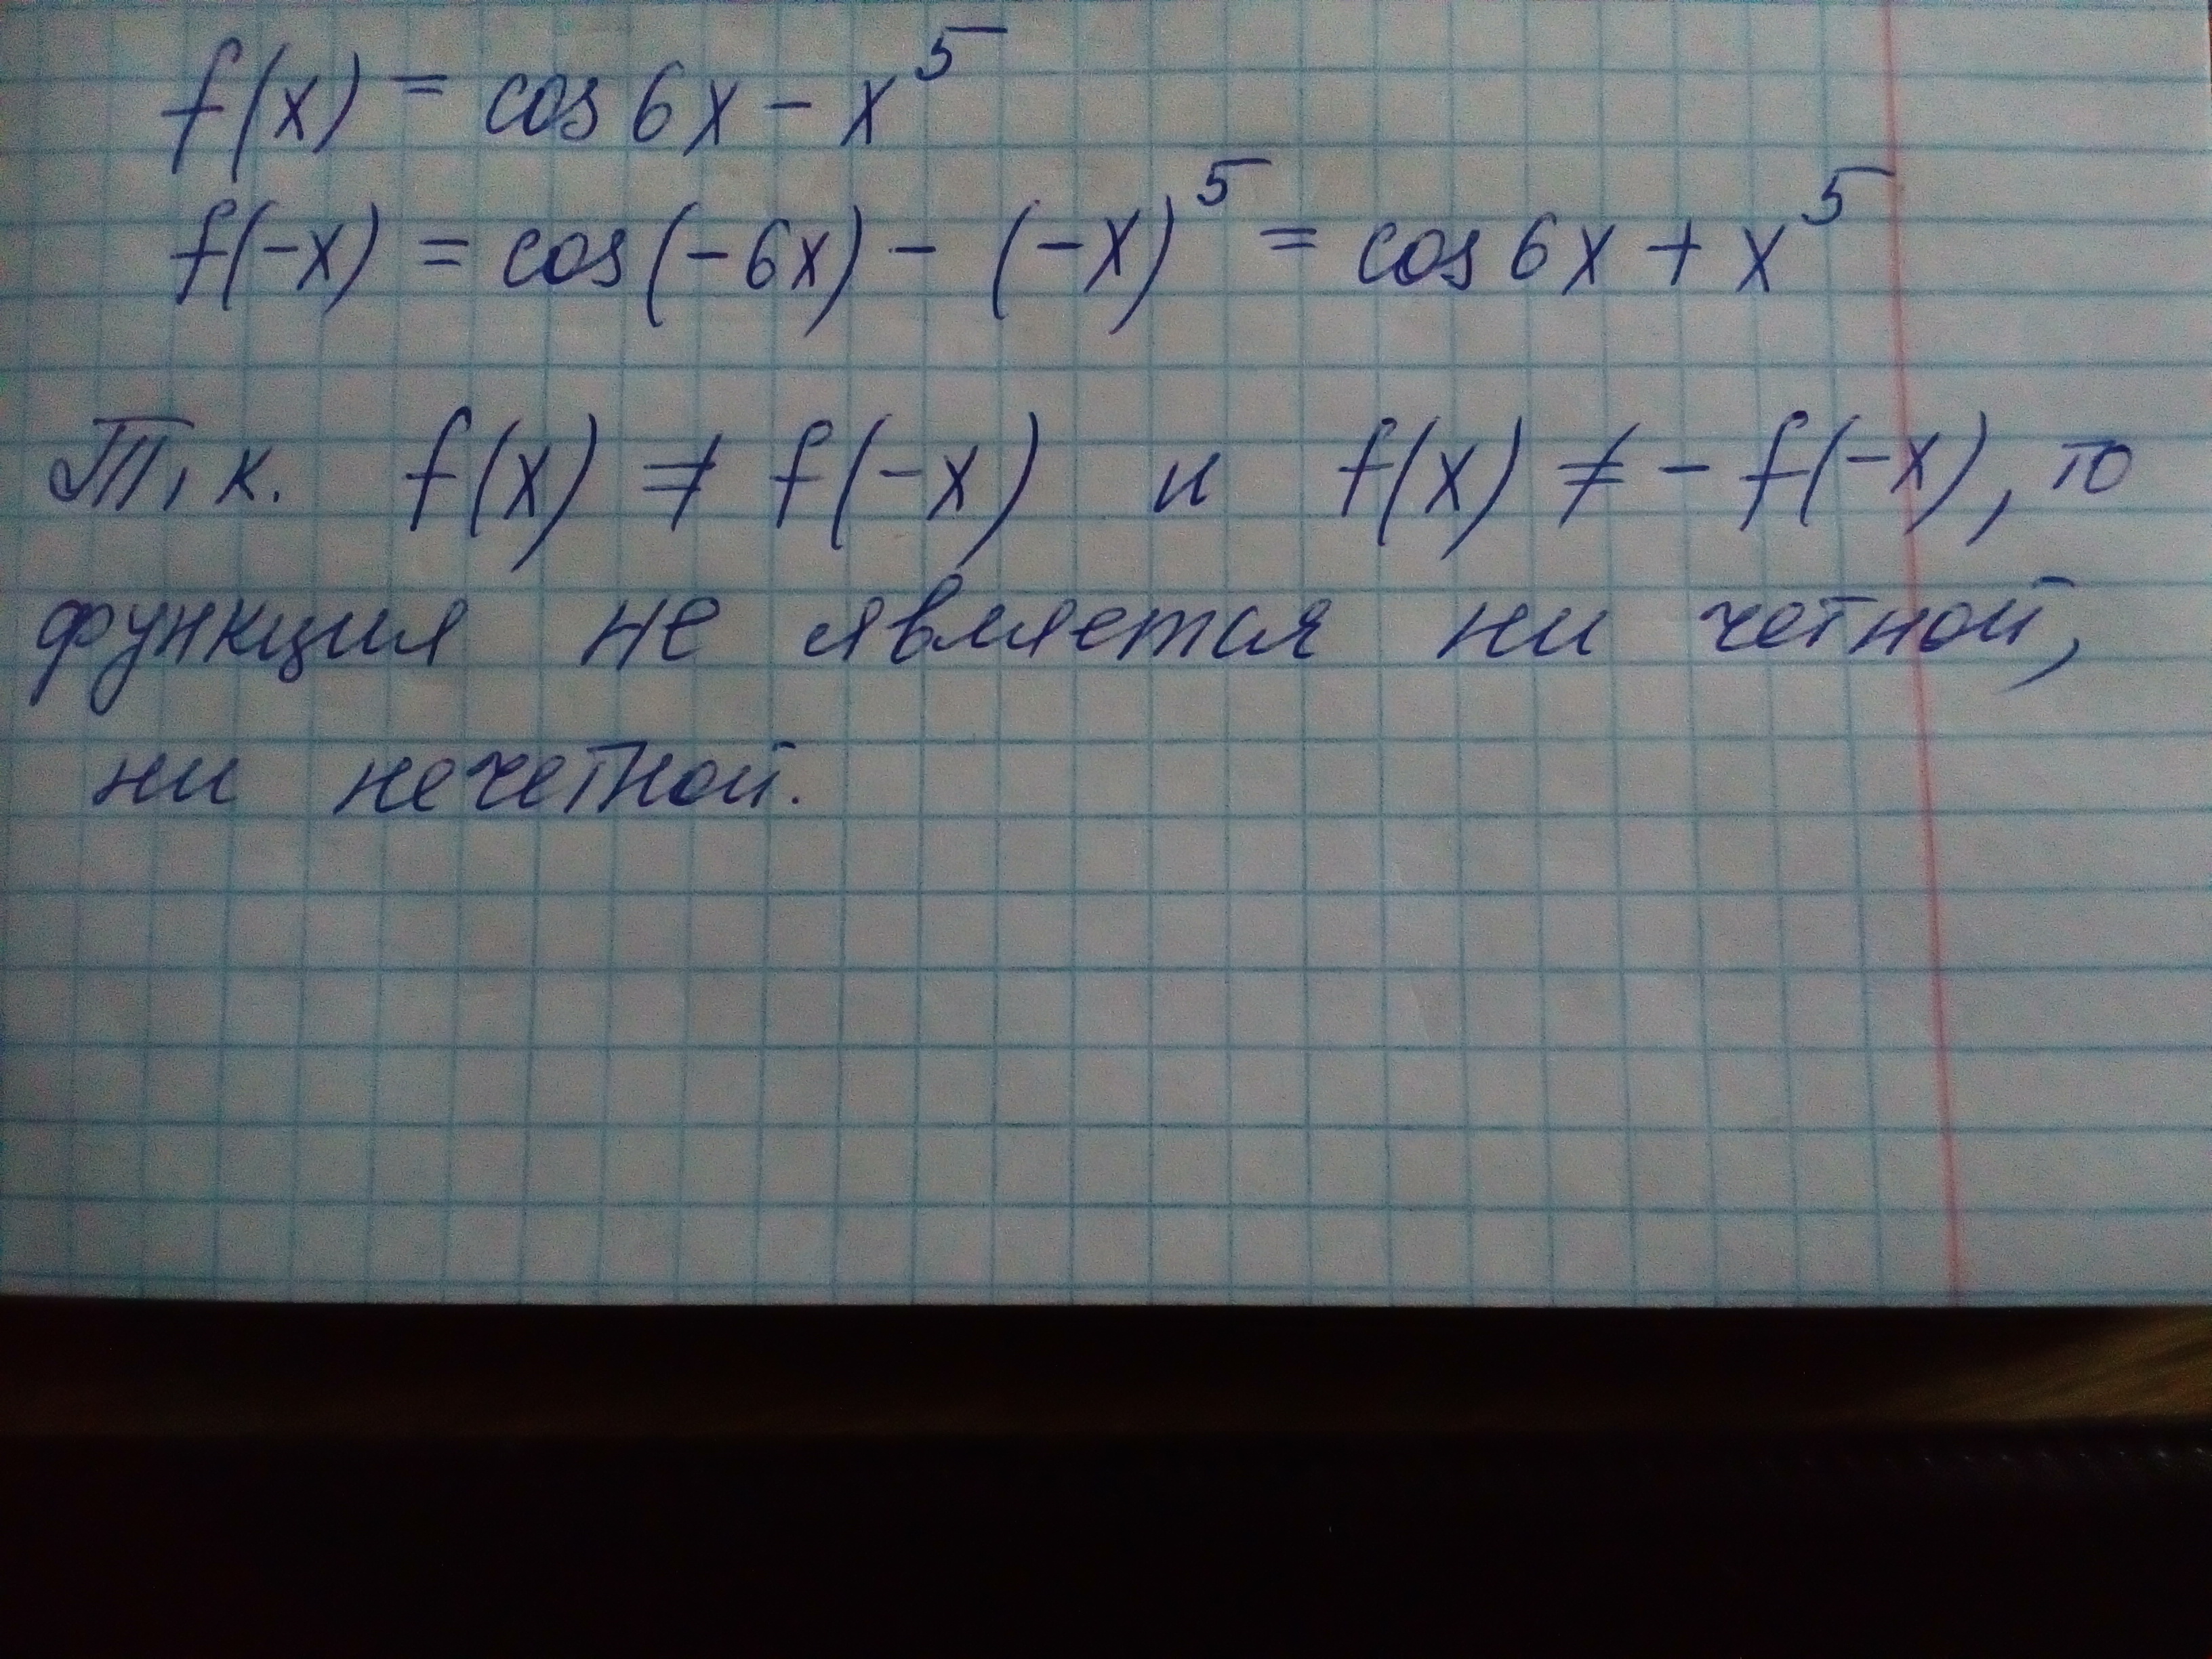 f(x) = cos 6x - x⁵
f(-x) = cos(-6x) - (-x)⁵ = cos 6x + x⁵
Т.к. f(x) ≠ f(-x) и f(x) ≠ - f(-x), то
функция не является ни четной,
ни нечетной.